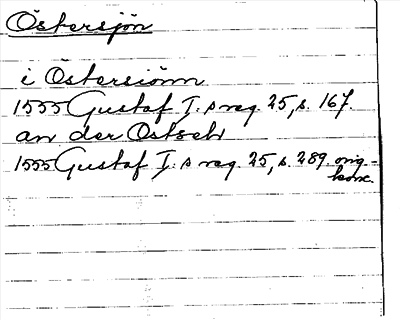 Östersjön
i Östersiönn
1555 Gustaf I:s reg. 25, s. 167.
an der Ostseh
1555 Gustaf I:s reg. 25, s. 289 orig.-
konc.